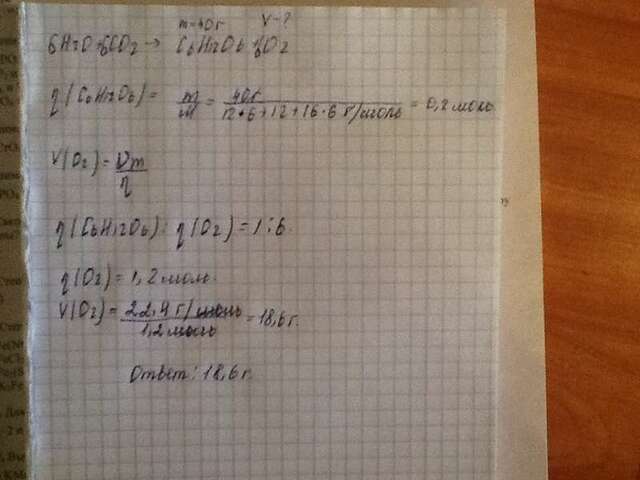 m=40г V-?
6H2O+6CO2→ C6H12O6+6O2
η(C6H12O6)= m/M = 40г/12·6+12+16·6 г/моль = 0,2 моль
V(O2)= Vm/η
η(C6H12O6):η(O2)=1:6.
η(O2)=1,2 моль.
V(O2)= 22,4 г/моль/1,2 моль =18,6 г.
Ответ: 18,6 г.